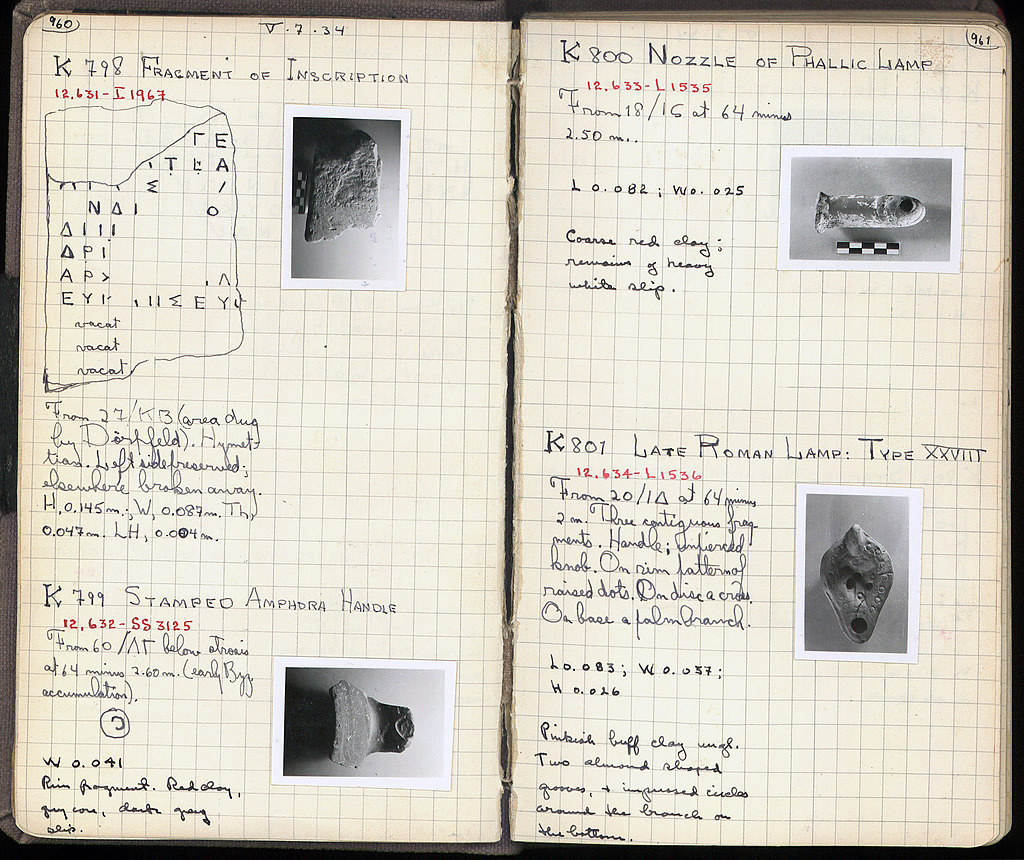 960
V . 7 . 34
K 798 FRAGMENT OF INSCRIPTION
12.631-I 1967
Γ Ε
Τ Α
Σ
Ν Δ Ι Ο
Δ Ι Ι Ι
Δ Ρ Ι
Α Ρ Λ
Ε Υ Ι Ι Σ Ε Υ
vacat
vacat
vacat
From 27/ΚΒ (area dug
by Dörpfeld). Hymet-
tian. Left side preserved;
elsewhere broken away.
H, 0.145m.; W, 0.087m. Th,
0.047m. LH, 0.004m.
K 799 STAMPED AMPHORA HANDLE
12,632-SS 3125
From 60/ΛΓ below strosis
at 64 minus 2.60m. (early Byz.
accumulation).
W 0.041
Rim fragment. Red clay,
grey core, dark grey
slip.
961
K 800 NOZZLE OF PHALLIC LAMP
12,633-L 1535
From 18/ΙϹ at 64 minus
2.50 m..
L 0.082 ; W 0.025
Coarse red clay;
remains of heavy
white slip.
K 801 LATE ROMAN LAMP: TYPE XXVIII
12,634-L 1536
From 20/ΙΔ at 64 minus
2 m. Three contiguous frag-
ments. Handle; unpierced
knob. On rim pattern of
raised dots. On disc a cross.
On base a palm branch.
L 0.083; W 0.057;
H 0.026
Pinkish buff clay ungl.
Two almond shaped
grooves, + impressed circles
around the branch on
the bottom.